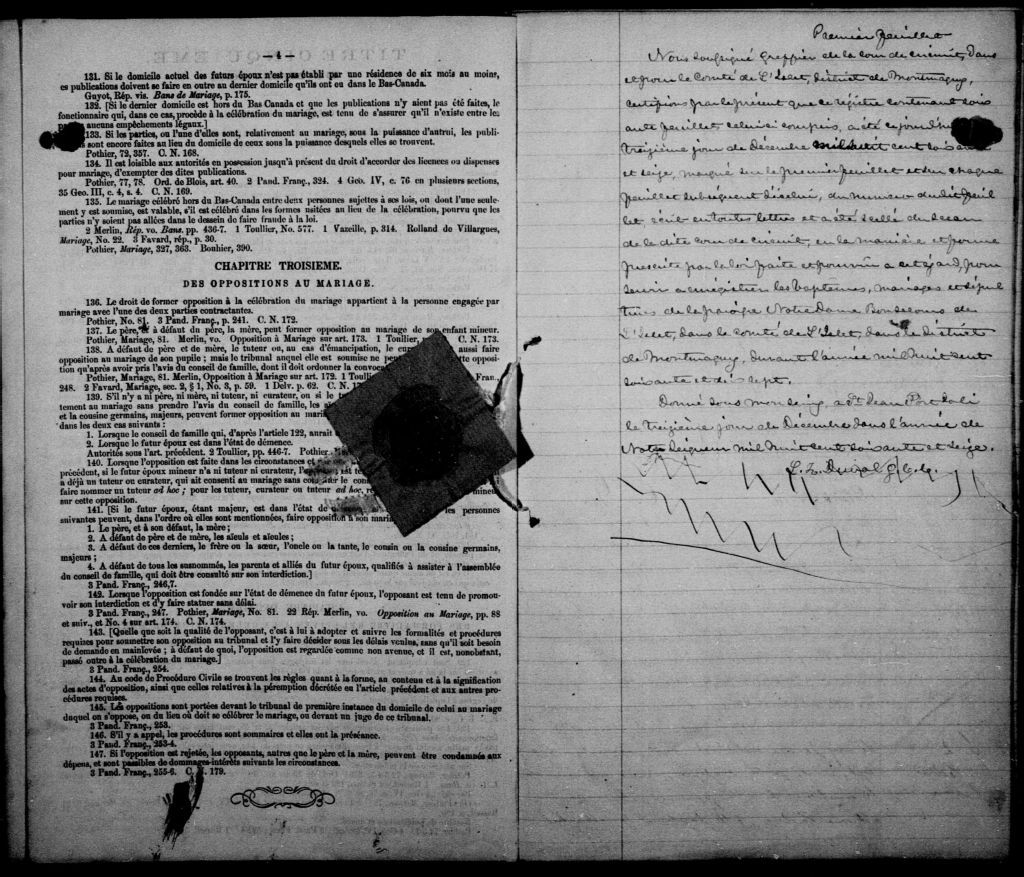 —4—
131. Si le domicile actuel des futurs époux n'est pas établi par une résidence de six mois au moins,
ces publications doivent se faire en outre au dernier domicile qu'ils ont eu dans le Bas-Canada.
Guyot, Rép. vis. Bans de Mariage, p. 175.
132. [Si le dernier domicile est hors du Bas Canada et que les publications n'y aient pas été faites, le
fonctionnaire qui, dans ce cas, procède à la célébration du mariage, est tenu de s'assurer qu'il n'existe entre les
aucuns empêchements légaux.]
133. Si les parties, ou l'une d'elles sont, relativement au mariage, sous la puissance d'autrui, les publi-
sont encore faites au lieu du domicile de ceux sous la puissance desquels elles se trouvent.
Pothier, 72, 357. C. N. 168.
134. Il est loisible aux autorités en possession jusqu'à présent du droit d'accorder des licences ou dispenses
pour mariage, d'exempter des dites publications.
Pothier, 77, 78. Ord. de Blois, art. 40. 2 Pand. Franç., 324. 4 Geo. IV, c. 76 en plusieurs sections,
35 Geo. III, c. 4, s. 4. C. N. 169.
135. Le mariage célébré hors du Bas-Canada entre deux personnes sujettes à ses lois, ou dont l'une seule-
ment y est soumise, est valable, s'il est célébré dans les formes usitées au lieu de la célébration, pourvu que les
parties n'y soient pas allées dans le dessein de faire fraude à la loi.
2 Merlin, Rép. vo. Bans. pp. 436-7. 1 Toullier, No. 577. 1 Vazeille, p. 314. Rolland de Villargues,
Mariage, No. 22. 3 Favard, rép., p. 30.
Pothier, Mariage, 327, 363. Bouhier, 390.
CHAPITRE TROISIEME.
DES OPPOSITIONS AU MARIAGE.
136. Le droit de former opposition à la célébration du mariage appartient à la personne engagée par
mariage avec l'une des deux parties contractantes.
Pothier, No. 81. 3 Pand. Franç., p. 241. C. N. 172.
137. Le père, et à défaut du père, la mère, peut former opposition au mariage de son enfant mineur.
Pothier, Mariage, 81. Merlin, vo. Opposition à Mariage sur art. 173. 1 Toullier, C. N. 173.
138. A défaut de père et de mère, le tuteur ou, au cas d'émancipation, le aussi faire
opposition au mariage de son pupille ; mais le tribunal auquel elle est soumise ne opposi-
tion qu'après avoir pris l'avis du conseil de famille, dont il doit ordonner la
Pothier, Mariage, 81. Merlin, Opposition à Mariage sur art. 172. 1 Fran.,
248. 2 Favard, Mariage, sec. 2, § 1, No. 3, p. 59. 1 Delv. p. 62. C. N.
139. S'il n'y a ni père, ni mère, ni tuteur, ni curateur, ou si le
tement au mariage sans prendre l'avis du conseil de famille, les
et la cousine germains, majeurs, peuvent former opposition au
dans les deux cas suivants :
1. Lorsque le conseil de famille qui, d'après l'article 122, aurait
2. Lorsque le futur époux est dans l'état de démence.
Autorités sous l'art. précédent. 2 Toullier, pp. 446-7.
140. Lorsque l'opposition est faite dans les circonstances et
précédent, si le futur époux mineur n'a ni tuteur ni curateur,
a déjà un tuteur ou curateur, qui ait consenti au mariage sans
faire nommer un tuteur ad hoc ; pour les tuteur, curateur ou tuteur ad hoc,
sur cette opposition.
141. [Si le futur époux, étant majeur, est dans l'état de personnes
suivantes peuvent, dans l'ordre où elles sont mentionnées, faire opposition à son
1. Le père, et à son défaut, la mère ;
2. A défaut de père et de mère, les aïeuls et aïeules ;
3. A défaut de ces derniers, le frère ou la sœur, l'oncle ou la tante, le cousin ou la cousine germains,
majeurs ;
4. A défaut de tous les susnommés, les parents et alliés du futur époux, qualifiés à assister à l'assemblée
du conseil de famille, qui doit être consulté sur son interdiction.]
3 Pand. Franç., 246,7.
142. Lorsque l'opposition est fondée sur l'état de démence du futur époux, l'opposant est tenu de promou-
voir son interdiction et d'y faire statuer sans délai.
3 Pand. Franç., 247. Pothier, Mariage, No. 81. 22 Rép. Merlin, vo. Opposition au Mariage, pp. 88
et suiv., et No. 4 sur art. 174. C. N. 174.
143. [Quelle que soit la qualité de l'opposant, c'est à lui à adopter et suivre les formalités et procédures
requises pour soumettre son opposition au tribunal et l'y faire décider sous les délais voulus, sans qu'il soit besoin
de demande en mainlevée ; à défaut de quoi, l'opposition est regardée comme non avenue, et il est, nonobstant,
passé outre à la célébration du mariage.]
3 Pand. Franç., 254.
144. Au code de Procédure Civile se trouvent les règles quant à la forme, au contenu et à la signification
des actes d'opposition, ainsi que celles relatives à la péremption décrétée en l'article précédent et aux autres pro-
cédures requises.
145. Les oppositions sont portées devant le tribunal de première instance du domicile de celui au mariage
duquel on s'oppose, ou du lieu où doit se célébrer le mariage, ou devant un juge de ce tribunal.
3 Pand. Franç., 253.
146. S'il y a appel, les procédures sont sommaires et elles ont la préséance.
3 Pand. Franç., 253-4.
147. Si l'opposition est rejetée, les opposants, autres que le père et la mère, peuvent être condamnés aux
dépens, et sont passibles de dommages-intérêts suivants les circonstances.
3 Pand. Franç., 255-6. C. N. 179.
Premier feuillet
Nous soussigné Greffier de la cour de circuit, dans
et pour le Comté de L'Islet, District de Montmagny,
certifions par le présent que ce régistre contenant sois
ante feuillet celui-ci compris, a été ce jourd'hui
treizième jour de Décembre mil huit cent soixante
et seize, marqué sur le premier feuillet et sur chaque
feuillet subséquent d'icelui, du numéro du dit feuil
let, écrit en toutes lettres et a été scellé du sceau
de la dite cour de circuit, en la manière et forme
prescrite par la loi faite et pourvue a cet égard, pour
servir a enrégistrer les baptemes, mariages et sépul
tures de la paroisse Notre Dame Bonsecours de
L'Islet, dans le comté de L'Islet, dans le district
de Montmagny, durant l'année mil huit cent
soixante et dix sept.
Donné sous mon seing, a St Jean Port Joli
le treizième jour de Décembre dans l'année de
Notre Seigneur mil huit cent soixante et seize.